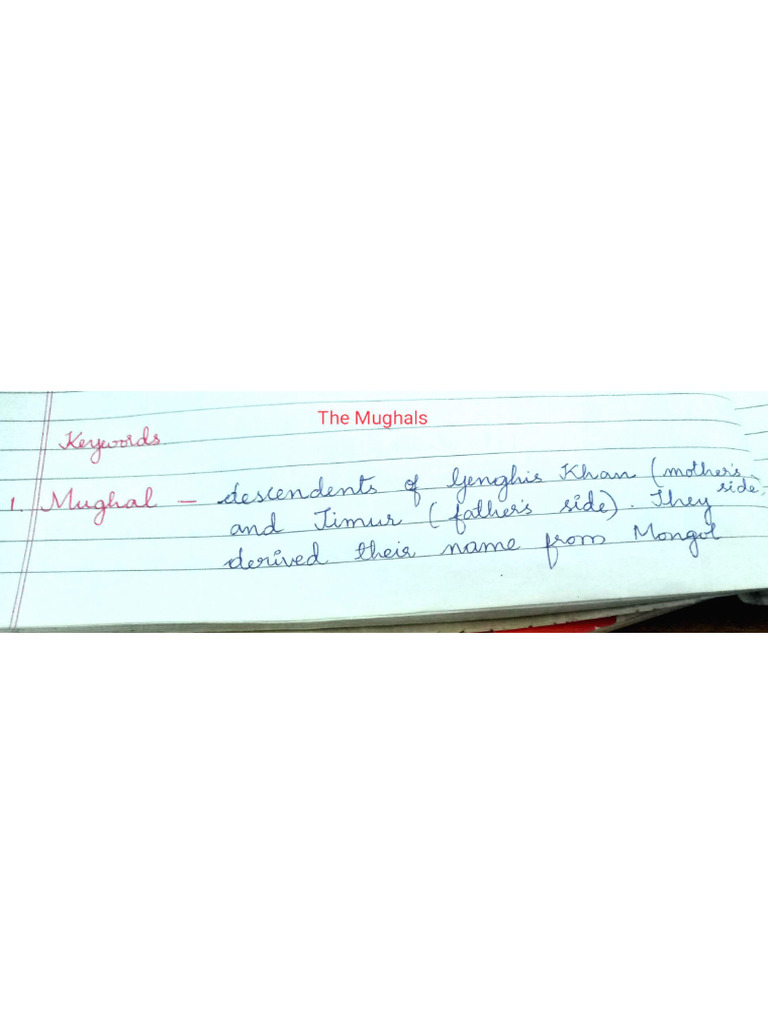 The Mughals
Keywords
1. Mughal - descendents of Genghis Khan (mother's side)
and Timur (father's side). They
derived their name from Mongol